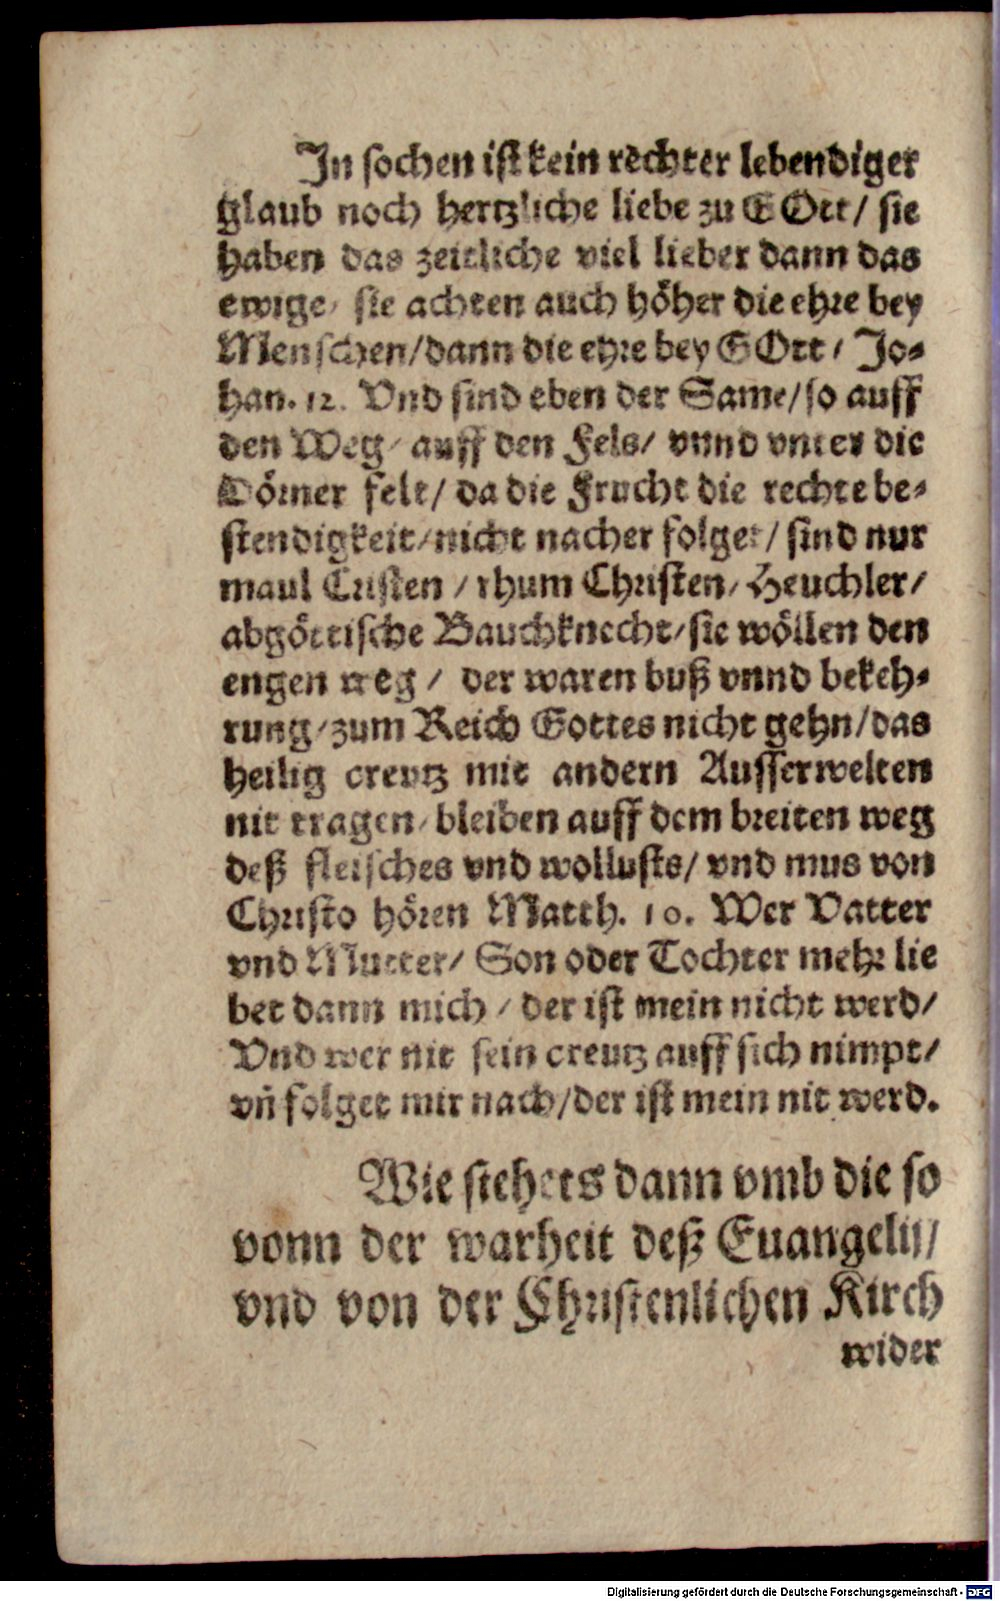 In sochen ist kein rechter lebendiger
glaub noch hertzliche liebe zu GOtt / sie
haben das zeitliche viel lieber dann das
ewige / sie achten auch höher die ehre bey
Menschen / dann die ehre bey GOtt / Jo-
han. 12. Vnd sind eben der Same / so auff
den Weg / auff den Fels / vnnd vnter die
Dörner felt / da die Frucht die rechte be-
stendigkeit / nicht nacher folget / sind nur
maul Cristen / rhum Christen / Heuchler /
abgöttische Bauchknecht / sie wöllen den
engen weg / der waren buß vnnd bekeh-
rung / zum Reich Gottes nicht gehn / das
heilig creutz mit andern Ausserwelten
nit tragen / bleiben auff dem breiten weg
deß fleisches vnd wollusts / vnd mus von
Christo hören Matth. 10. Wer Vatter
vnd Mutter / Son oder Tochter mehr lie
bet dann mich / der ist mein nicht werd /
Vnd wer nit sein creutz auff sich nimpt /
vñ folget mir nach / der ist mein nit werd.
Wie stehets dann vmb die so
vonn der warheit deß Euangelij /
vnd von der Christenlichen Kirch
wider
Digitalisierung gefördert durch die Deutsche Forschungsgemeinschaft - DFG